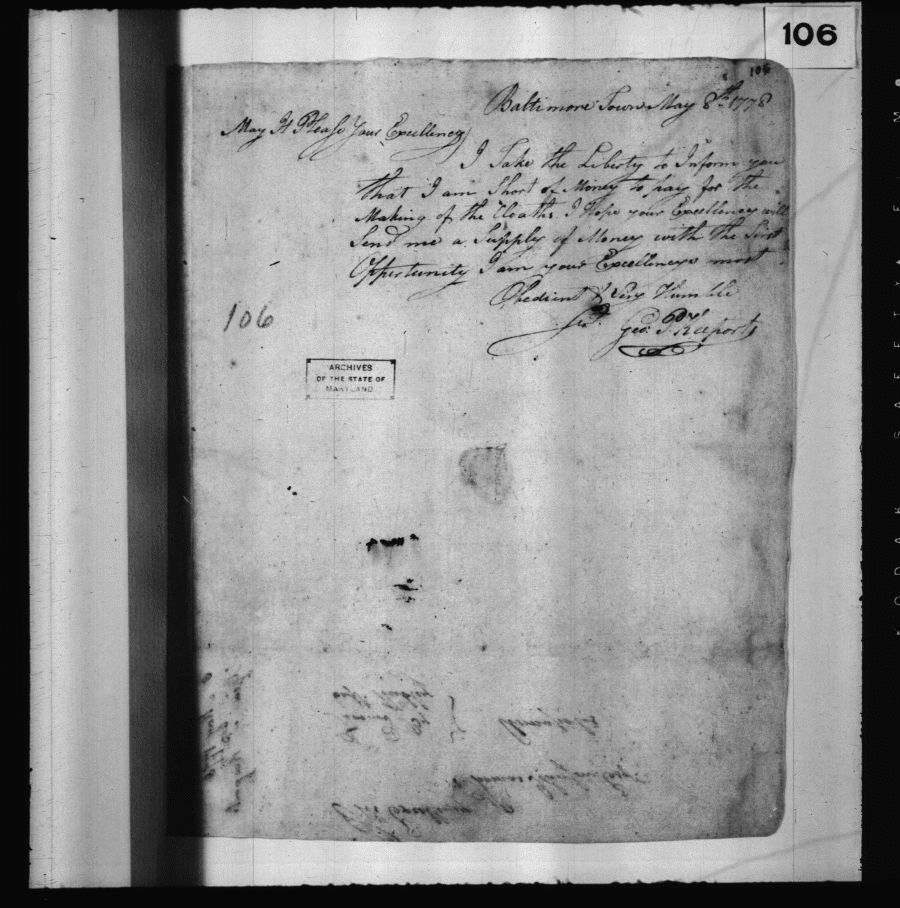 106
106
Baltimore Town May 8th 1778
May It Please Your Excellency
I Take the Liberty to Inform you
that I am Short of Money to pay for the
Making of the Cloaths I Hope your Excellency will
Send me a Supply of Money with the first
Oppertunity I am your Excellencys most
Obedient & Very Humble
Servt.
Geo: P. Keeports
106
ARCHIVES
OF THE STATE OF
MARYLAND
KODAK SAFETY FILM